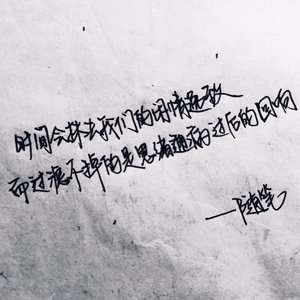 时间会抹去我们的闲情逸致
而过滤不掉的是思绪翻涌过后的回响
——随笔